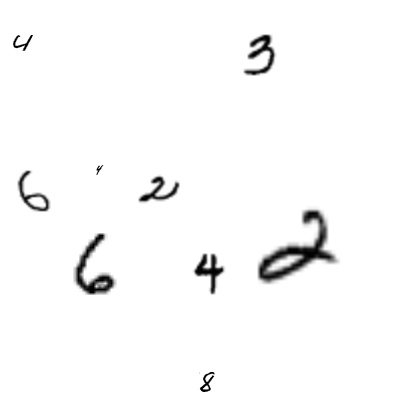 4 3
6 4 2
6 4 2
8